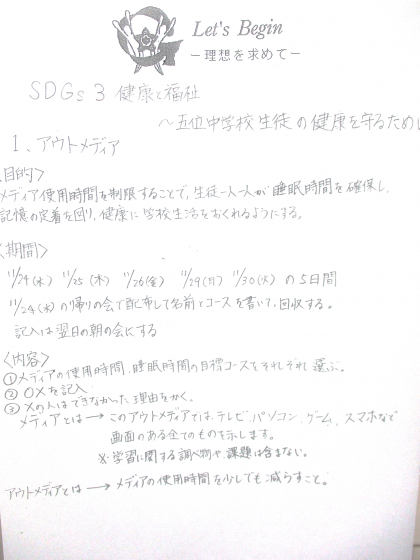 Let's Begin
－理想を求めて－
SDGs 3 健康と福祉
～五位中学校生徒の健康を守るため
1、アウトメディア
〈目的〉
メディア使用時間を制限することで、生徒一人一人が睡眠時間を確保し、
記憶の定着を図り、健康に学校生活をおくれるようにする。
〈期間〉
11/24(水) 11/25(木) 11/26(金) 11/29(月) 11/30(火) の5日間
11/24(水)の帰りの会で配布して名前とコースを書いて、回収する。
記入は翌日の朝の会にする
〈内容〉
①メディアの使用時間、睡眠時間の目標コースをそれぞれ選ぶ。
②○×を記入
③×の人はできなかった理由をかく。
メディアとは→このアウトメディアでは、テレビ、パソコン、ゲーム、スマホなど
画面のある全てのものを示します。
※学習に関する調べ物や、課題は含まない。
アウトメディアとは→メディアの使用時間を少しでも減らすこと。